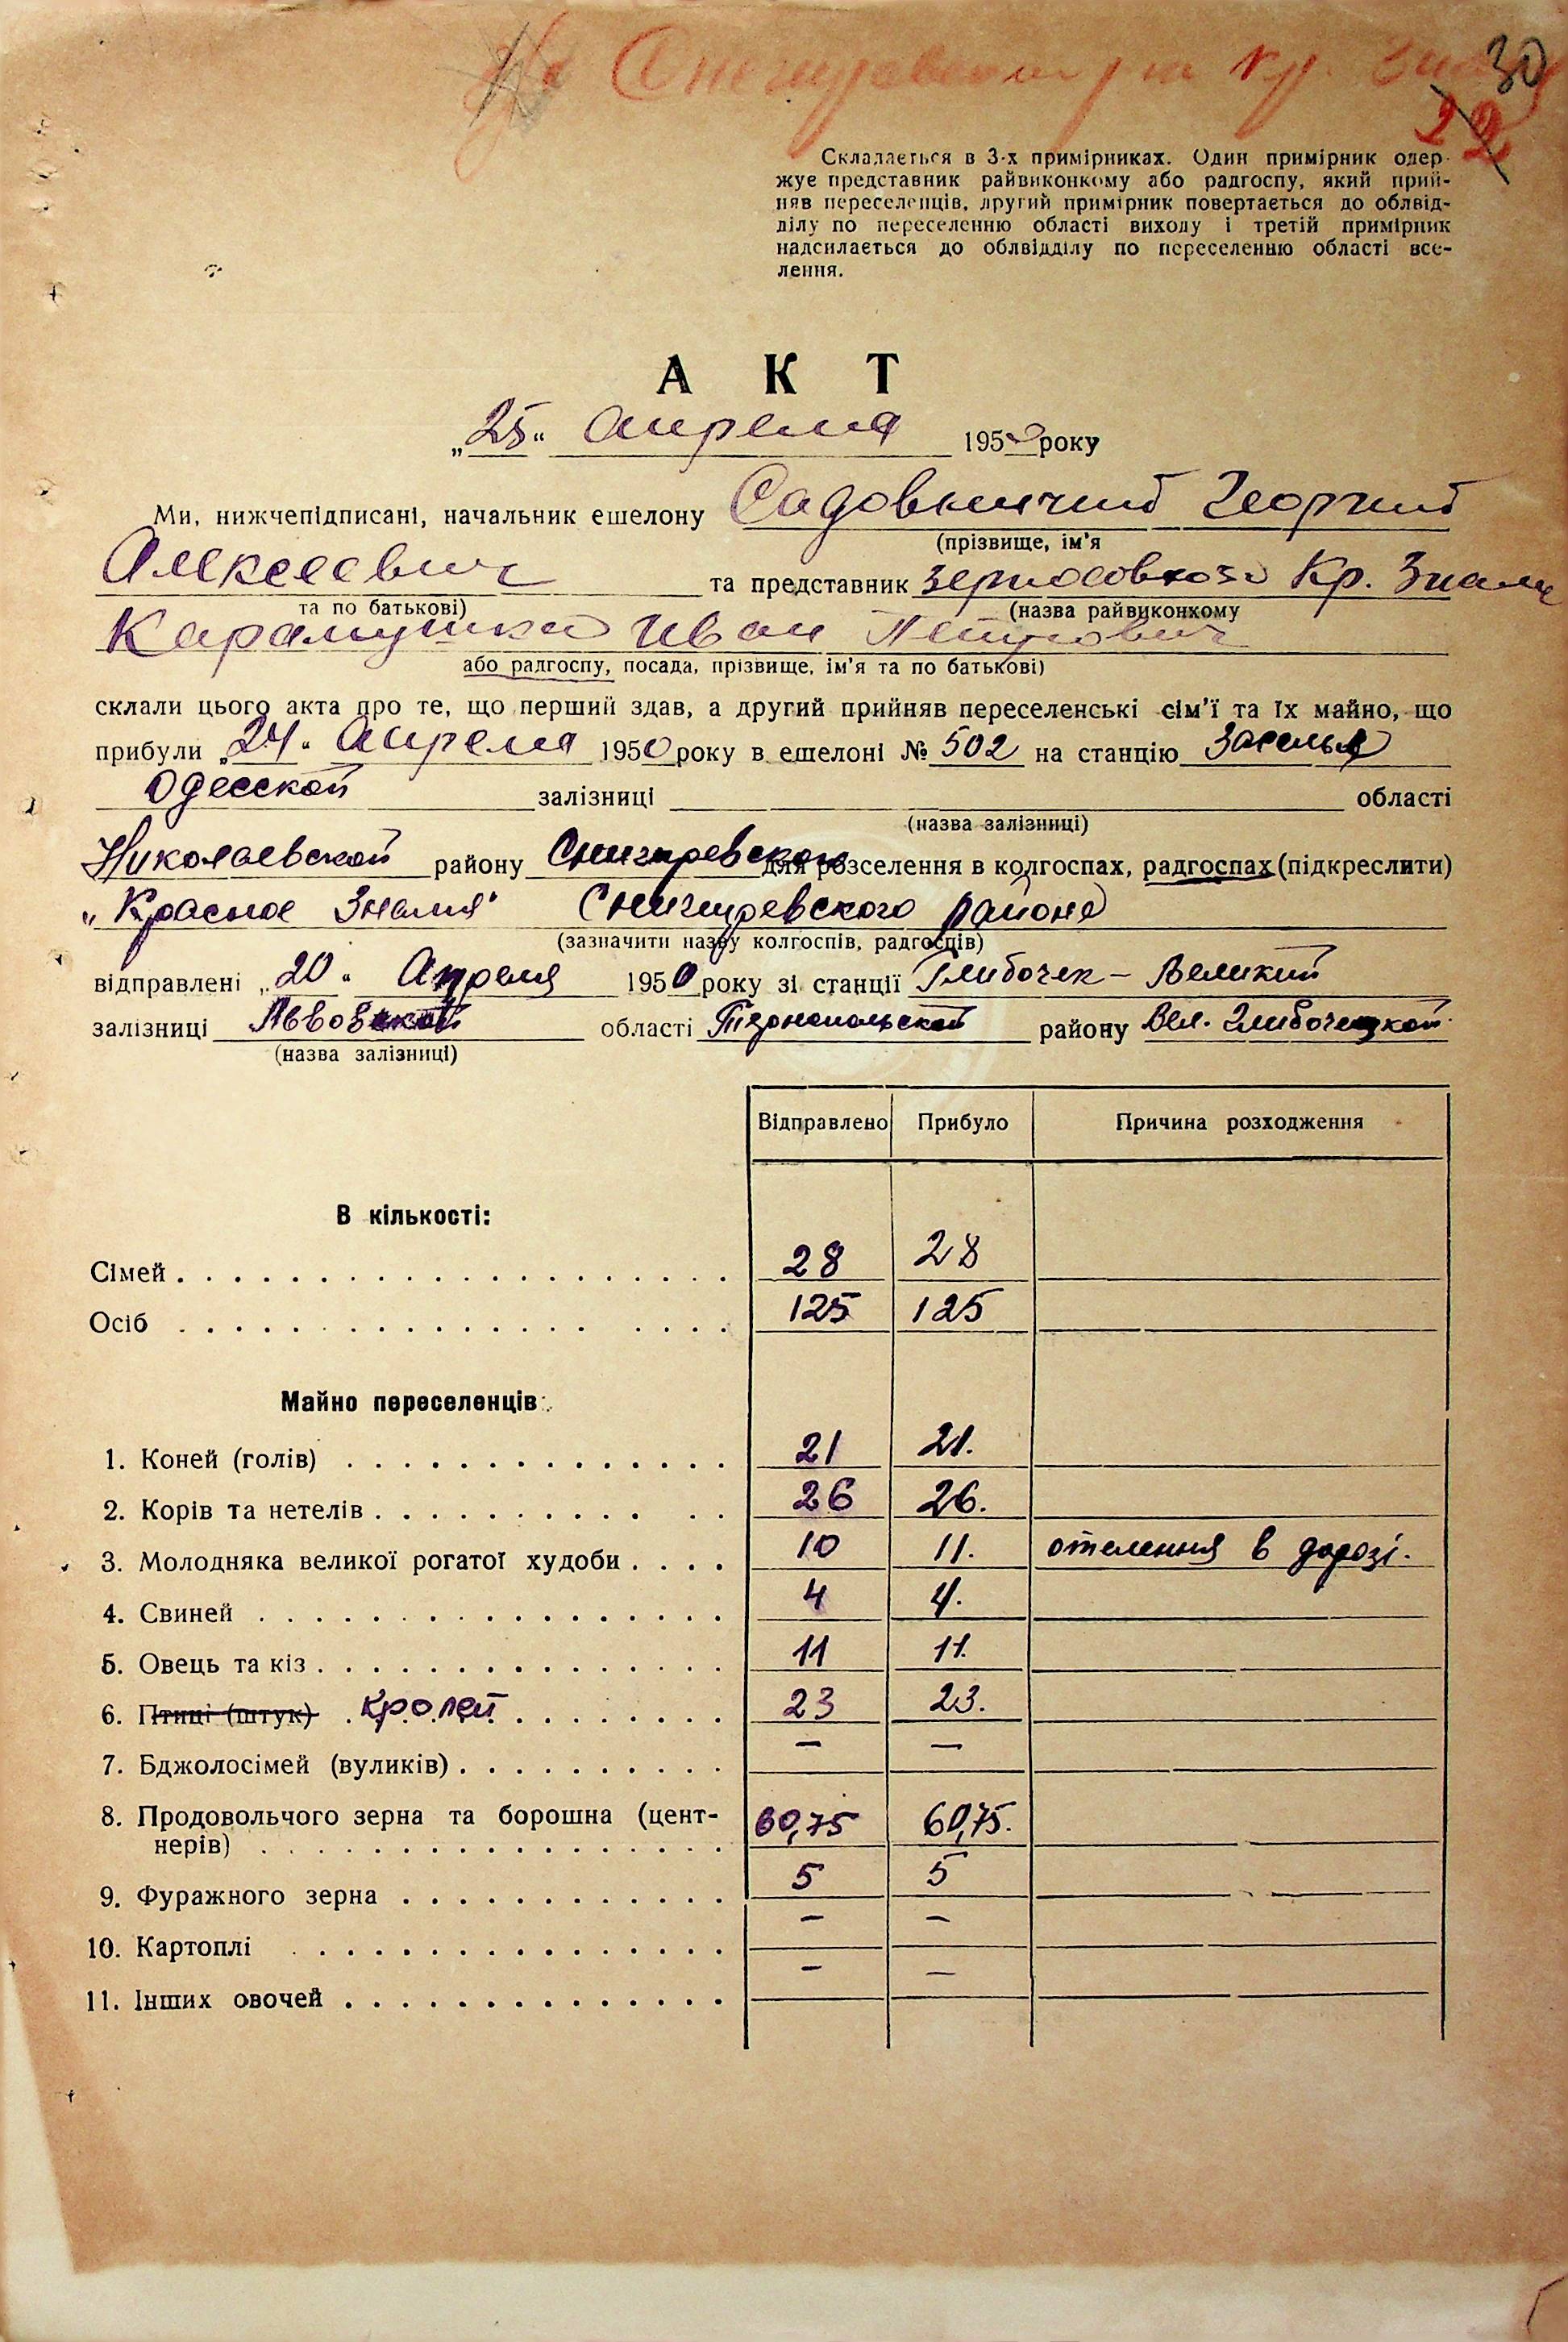 30
22
Складається в 3-х примірниках. Один примірник одер-
жує представник райвиконкому або радгоспу, який прий-
няв переселенців, другий примірник повертається до облвід-
ділу по переселенню області виходу і третій примірник
надсилається до облвідділу по переселенню області все-
лення.
АКТ
„25“ апреля 1950 року
Ми, нижчепідписані, начальник ешелону Садовничий Георгий
(прізвище, ім'я
Алексеевич та представник зерносовхоза Кр. Знамя
та по батькові) (назва райвиконкому
Карамушка Иван Петрович
або радгоспу, посада, прізвище, ім'я та по батькові)
склали цього акта про те, що перший здав, а другий прийняв переселенські сім'ї та їх майно, що
прибули „24“ Апреля 1950 року в ешелоні № 502 на станцію Заселье
Одесской залізниці області
(назва залізниці)
Николаевской району Снигиревском для розселення в колгоспах, радгоспах (підкреслити)
„Красное Знамя“ Снигиревского района
(зазначити назву колгоспів, радгоспів)
відправлені „20“ Апреля 1950 року зі станції Глибочек – Великий
залізниці Львовской області Тернопольской району Вел. Глибочецкой
(назва залізниці)
Відправлено Прибуло Причина розходження
В кількості:
Сімей 28 28
Осіб 125 125
Майно переселенців:
1. Коней (голів) 21 21.
2. Корів та нетелів 26 26.
3. Молодняка великої рогатої худоби 10 11. отелення в дорозі.
4. Свиней 4 4.
5. Овець та кіз 11 11.
6. Птиці (штук) Кролей 23 23.
7. Бджолосімей (вуликів) — —
8. Продовольчого зерна та борошна (цент-
нерів) 60,75 60,75.
9. Фуражного зерна 5 5
10. Картоплі — —
11. Інших овочей — —